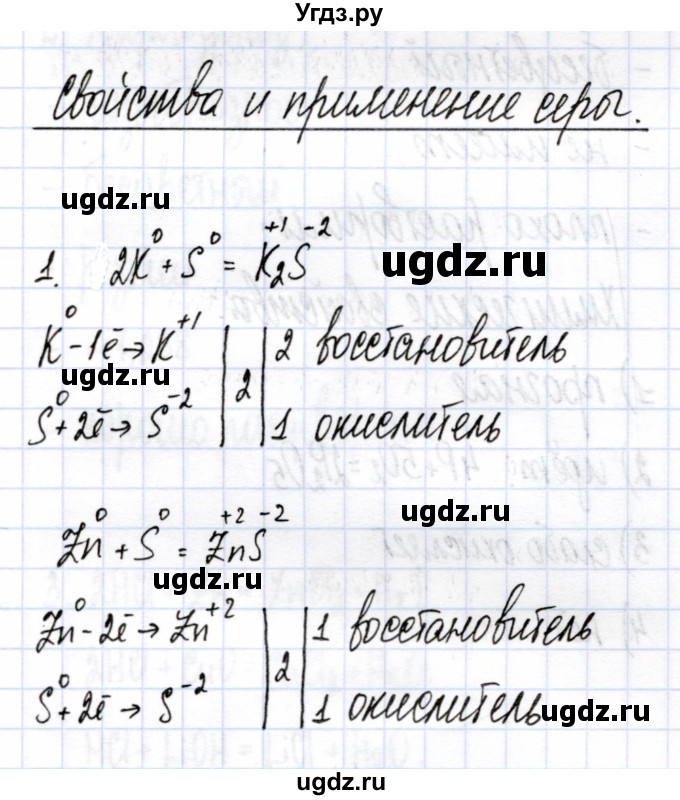 Угдз.ру
Свойства и применение серы.
ugdz.ru
1. 2K⁰ + S⁰ = K₂⁺¹S⁻²
ugdz.ru
K⁰ - 1ē → K⁺¹ | 2 | 2 восстановитель
ugdz.ru
S⁰ + 2ē → S⁻² | 2 | 1 окислитель
ugdz.ru
Zn⁰ + S⁰ = Zn⁺²S⁻²
ugdz.ru
Zn⁰ - 2ē → Zn⁺² | 2 | 1 восстановитель
S⁰ + 2ē → S⁻² | 2 | 1 окислитель
ugdz.ru
ugdz.ru